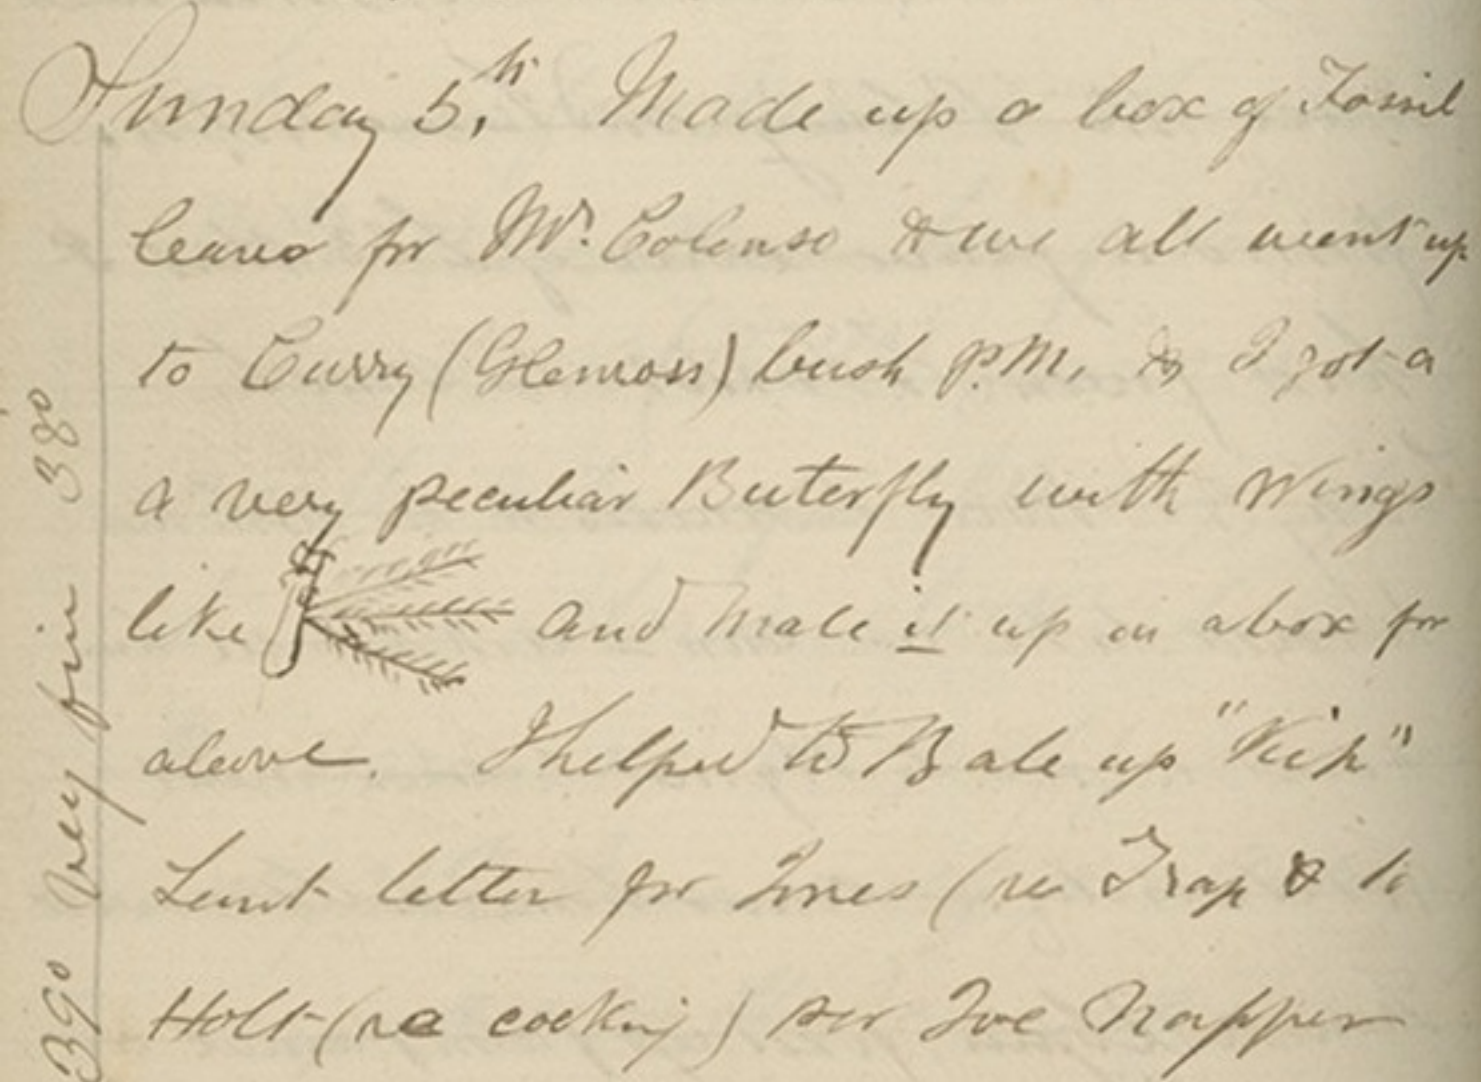 Sunday 5,th Made up a box of Fossil
leaves for Mr. Colenso & we all went up
to Curry (Glenross) bush p.m, & I got a
a very peculiar Buterfly with Wings
like and made it up in a box for
above. I helped to Bale up "Kip"
Sent letter for Jones (re Trap & to
Holt (re cooking) per Joe Napper
390 very fine 380